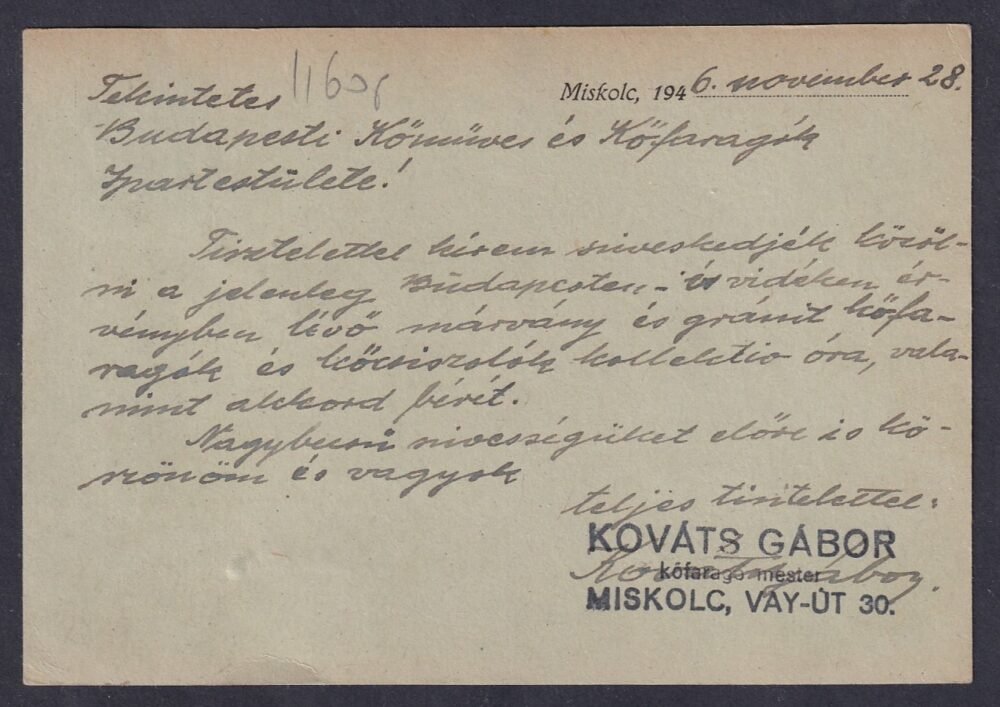 Miskolc, 1946. november 28.
Tekintetes
Budapesti Kőműves és Kőfaragók
Ipartestülete!
Tisztelettel kérem sziveskedjék közöl-
ni a jelenleg Budapesten - és vidéken ér-
vényben lévő márvány és gránit kőfa-
ragók és kőcsiszolók kollektiv óra, vala-
mint akkord bérét.
Nagybecsű szivességüket előre is kö-
szönöm és vagyok
teljes tisztelettel:
KOVÁTS GÁBOR
kőfaragó mester
MISKOLC, VAY-ÚT 30.